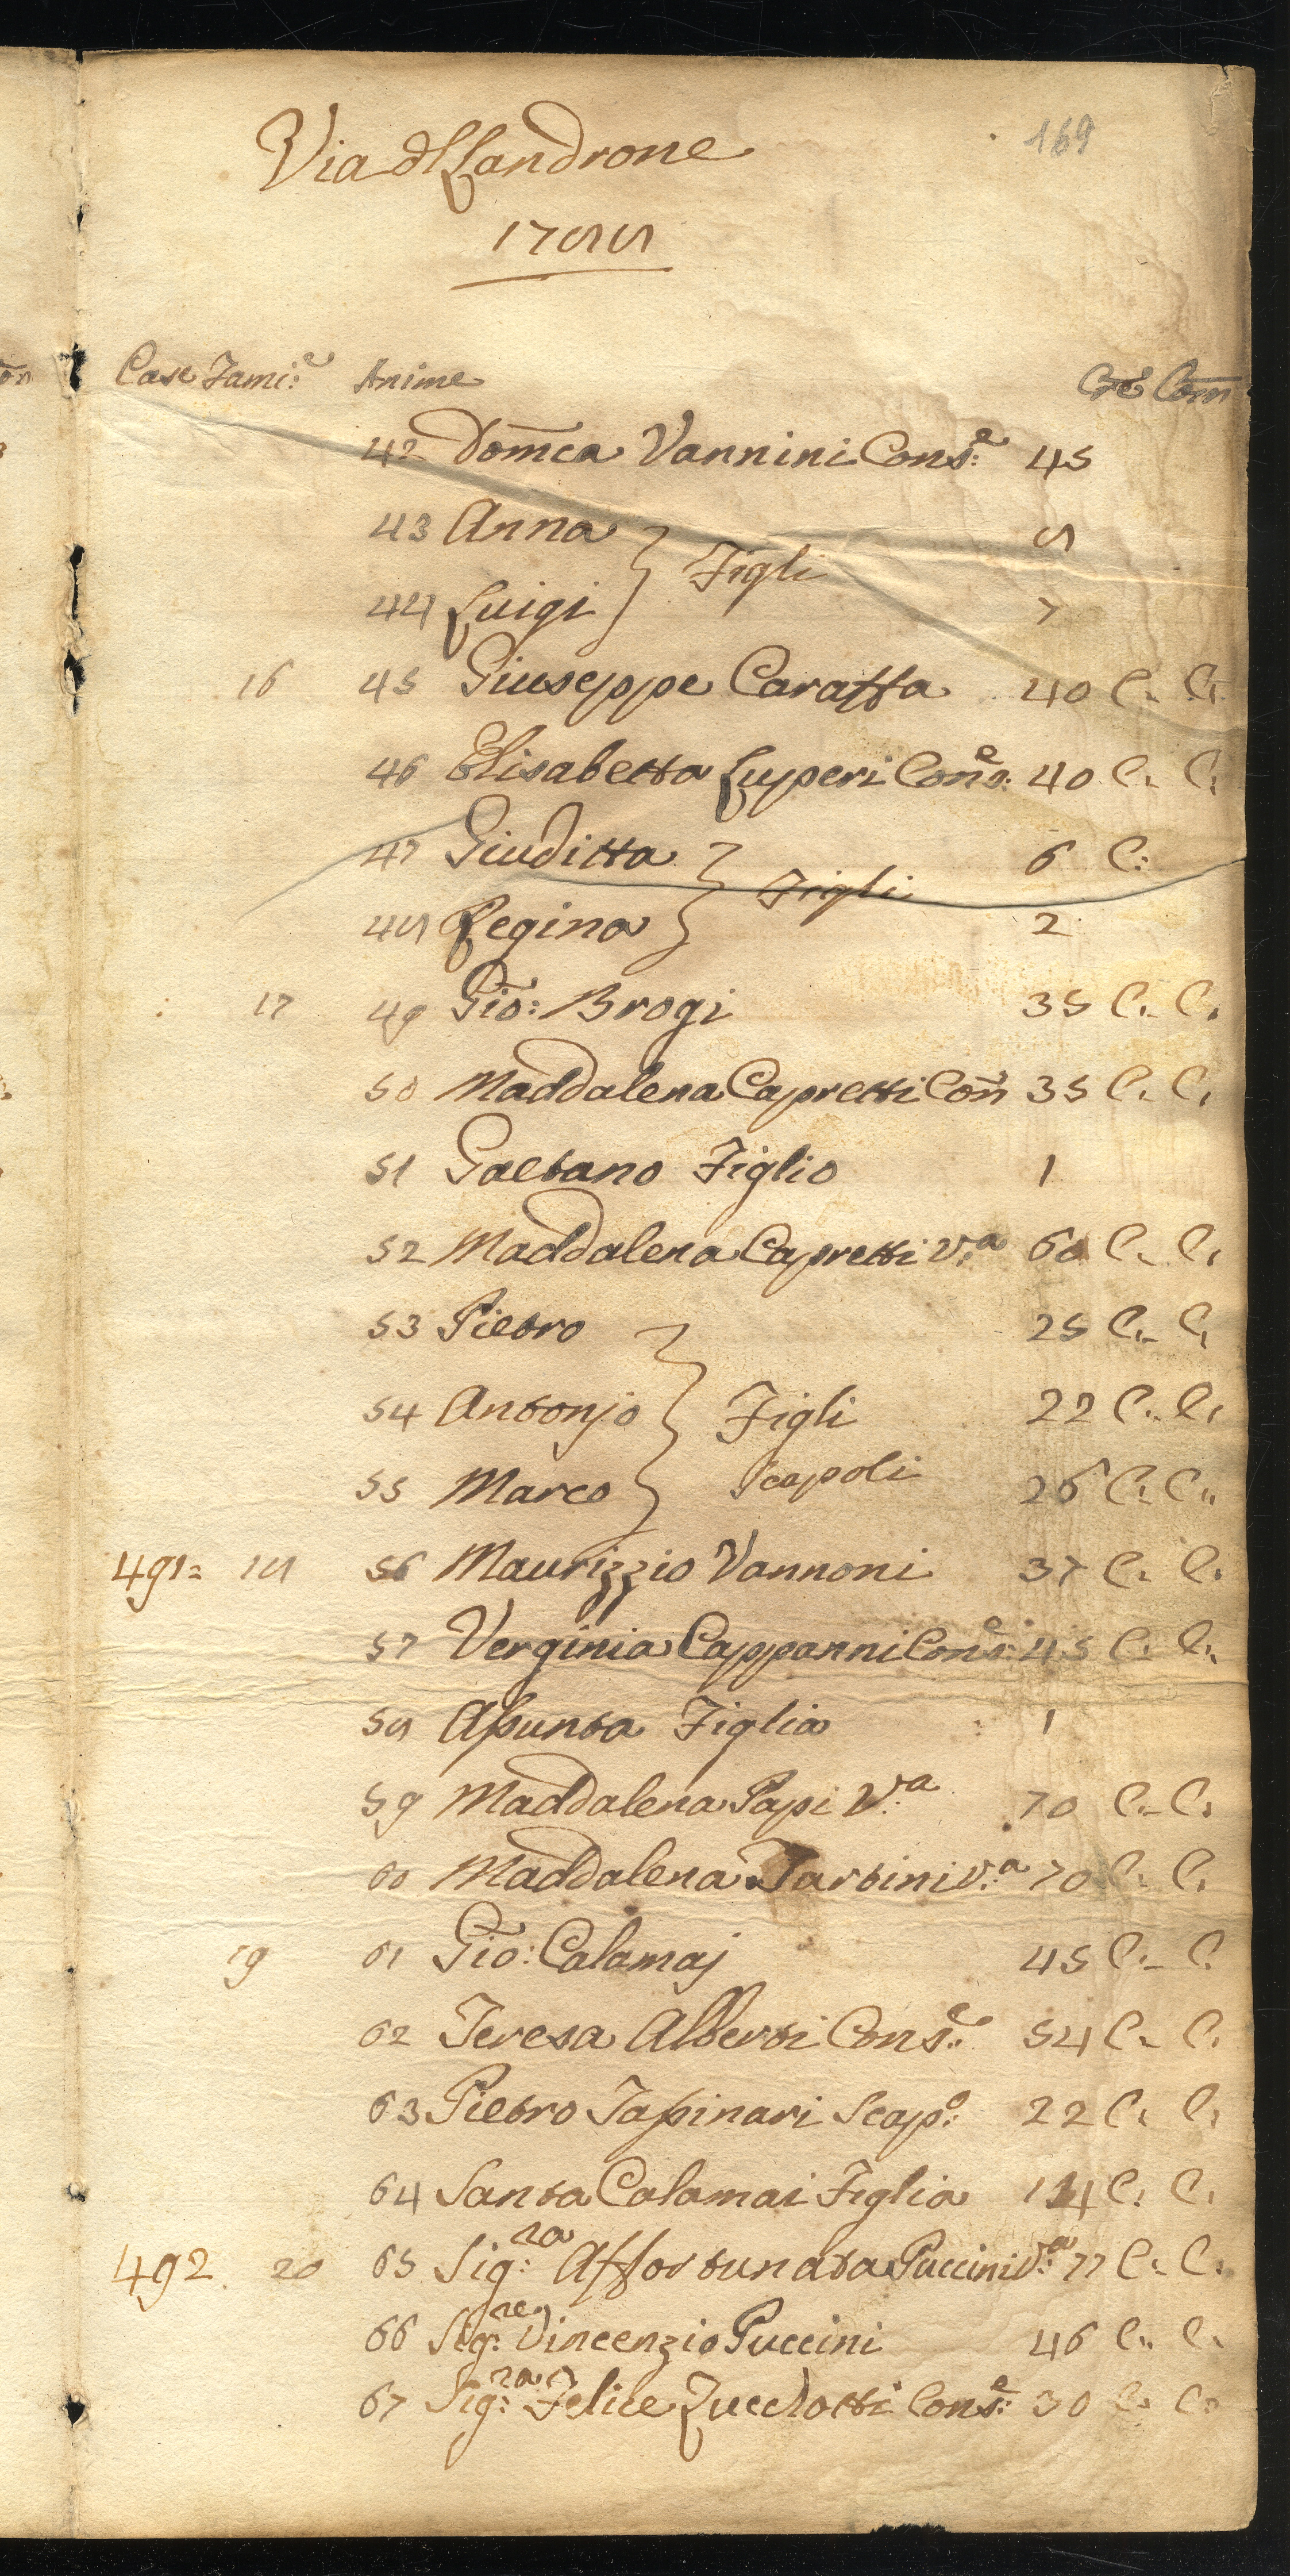 169
Via dl Landrone
1788
Case Fami:e Anime Cre Com
42 Domca Vannini Cons:e 45
43 Anna 8
Figli
44 Luigi 7
16 45 Giuseppe Caraffa 40 C. C.
46 Elisabetta Luperi Cons:e 40 C. C.
47 Giuditta 6 C:
Figli
48 Regina 2
17 49 Gio: Brogi 35 C. C.
50 Maddalena Capretti Con 35 C. C.
51 Gaetano Figlio 1
52 Maddalena Capretti v:a 60 C. C.
53 Pietro 25 C. C.
54 Antonjo Figli 22 C. C.
55 Marco Scapoli 26 C. C.
491= 18 56 Maurizzio Vannoni 37 C. C.
57 Verginia Cappanni Cons:e 45 C. C.
58 Assunta Figlia 1
59 Maddalena Papi V:a 70 C. C.
60 Maddalena Tartini v:a 70 C. C.
19 61 Gio: Calamaj 45 C. C.
62 Teresa Alberti Cons:e 54 C. C.
63 Pietro Tassinari Scap:o 22 C. C.
64 Santa Calamai Figlia 14 C. C.
492. 20 65 Sig:ra Affortunata Puccini V:a 77 C. C.
66 Sig:re Vincenzio Puccini 46 C. C.
67 Sig:ra Felice Zucchotti Cons:e 30 C. C.